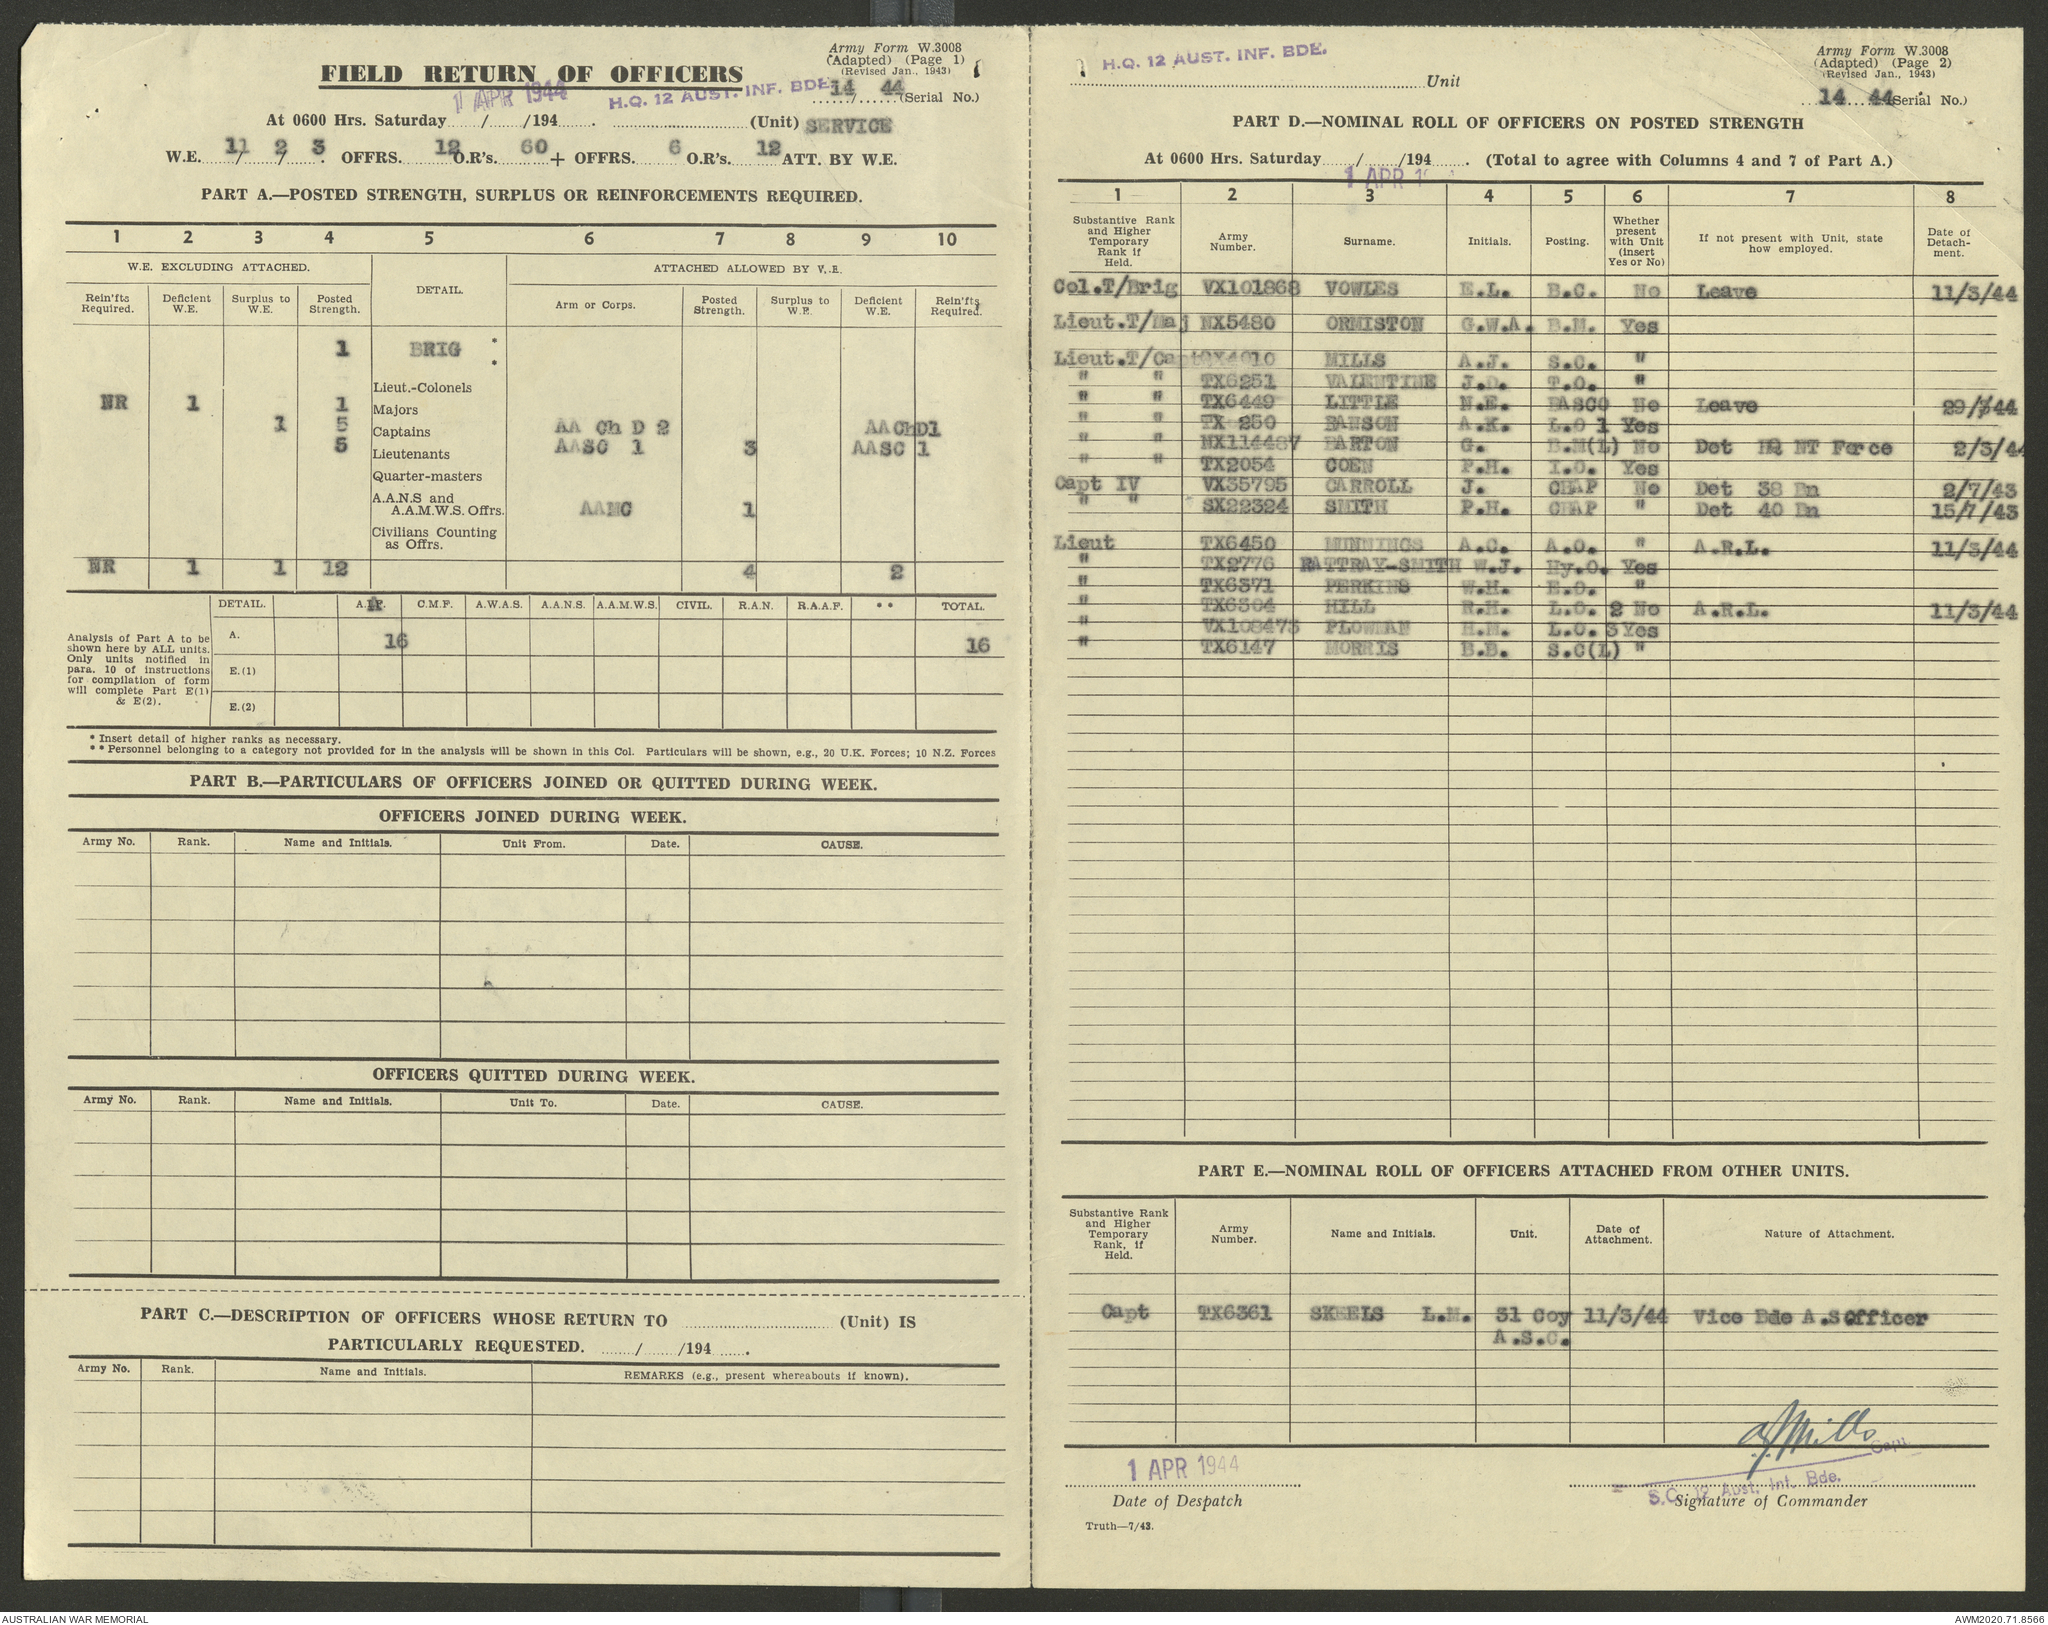 Army Form W.3008
(Adapted) (Page 1)
(Revised Jan., 1943)
FIELD RETURN OF OFFICERS
1 APR 1944 H.Q. 12 AUST. INF. BDE. 14 44
....../......(Serial No.)
At 0600 Hrs. Saturday....../....../194...... . ..............................(Unit) SERVICE
W.E. 11/ 2/ 3. OFFRS. 12 O.R's. 60 + OFFRS. 6 O.R's. 12 ATT. BY W.E.
PART A.—POSTED STRENGTH, SURPLUS OR REINFORCEMENTS REQUIRED.
1 2 3 4 5 6 7 8 9 10
W.E. EXCLUDING ATTACHED. DETAIL. ATTACHED ALLOWED BY W.E.
Rein'fts Required. Deficient W.E. Surplus to W.E. Posted Strength. Arm or Corps. Posted Strength. Surplus to W.E. Deficient W.E. Rein'fts Required.
1 BRIG *
*
Lieut.-Colonels
NR 1 1 Majors
1 5 Captains AA Ch D 2 AAChD1
5 Lieutenants AASC 1 3 AASC 1
Quarter-masters
A.A.N.S and
A.A.M.W.S. Offrs. AAMC 1
Civilians Counting
as Offrs.
NR 1 1 12 4 2
DETAIL. A.I.F. C.M.F. A.W.A.S. A.A.N.S. A.A.M.W.S. CIVIL. R.A.N. R.A.A.F. ** TOTAL.
Analysis of Part A to be
shown here by ALL units.
Only units notified in
para. 10 of instructions
for compilation of form
will complete Part E(1)
& E(2).
A. 16 16
E.(1)
E.(2)
* Insert detail of higher ranks as necessary.
** Personnel belonging to a category not provided for in the analysis will be shown in this Col. Particulars will be shown, e.g., 20 U.K. Forces; 10 N.Z. Forces
PART B.—PARTICULARS OF OFFICERS JOINED OR QUITTED DURING WEEK.
OFFICERS JOINED DURING WEEK.
Army No. Rank. Name and Initials. Unit From. Date. CAUSE.
OFFICERS QUITTED DURING WEEK.
Army No. Rank. Name and Initials. Unit To. Date. CAUSE.
PART C.—DESCRIPTION OF OFFICERS WHOSE RETURN TO .............................. (Unit) IS
PARTICULARLY REQUESTED. ......./......./194...... .
Army No. Rank. Name and Initials. REMARKS (e.g., present whereabouts if known).
H.Q. 12 AUST. INF. BDE.
..............................Unit
Army Form W.3008
(Adapted) (Page 2)
(Revised Jan., 1943)
14 44 (Serial No.)
PART D.—NOMINAL ROLL OF OFFICERS ON POSTED STRENGTH
At 0600 Hrs. Saturday....../....../194...... . (Total to agree with Columns 4 and 7 of Part A.)
1 APR
1 2 3 4 5 6 7 8
Substantive Rank and Higher Temporary Rank if Held. Army Number. Surname. Initials. Posting. Whether present with Unit (insert Yes or No) If not present with Unit, state how employed. Date of Detachment.
Col.T/Brig VX101868 VOWLES E.L. B.C. No Leave 11/3/44
Lieut.T/Maj NX5480 ORMISTON G.W.A. B.M. Yes
Lieut.T/Capt MILLS A.J. S.C. "
" " TX6251 VALENTINE J.D. T.O. "
" " TX6449 LITTLE N.E. BASCO No Leave 29/3/44
" " TX 250 RANSON A.K. L.O 1 Yes
" " NX114487 BARTON G. B.M(L) No Det HQ NT Force 2/3/44
" " TX2054 COEN P.H. I.O. Yes
Capt IV VX35795 CARROLL J. CHAP No Det 38 Bn 2/7/43
" " SX22324 SMITH P.H. CHAP " Det 40 Bn 15/7/43
Lieut TX6450 MUNNINGS A.C. A.O. " A.R.L. 11/3/44
" TX2776 RATTRAY-SMITH W.J. Hy.O. Yes
" TX6371 PERKINS W.H. E.O. "
" TX6304 HILL R.H. L.O. 2 No A.R.L. 11/3/44
" VX108473 PLOWMAN H.M. L.O. 3 Yes
" TX6147 MORRIS B.B. S.C(L) "
PART E.—NOMINAL ROLL OF OFFICERS ATTACHED FROM OTHER UNITS.
Substantive Rank and Higher Temporary Rank, if Held. Army Number. Name and Initials. Unit. Date of Attachment. Nature of Attachment.
Capt TX6361 SKEELS L.M. 31 Coy 11/3/44 Vice Bde A.SOfficer
A.S.C.
AJMills
Capt.
1 APR 1944 S.C. 12 Aust. Inf. Bde.
Date of Despatch Signature of Commander
Truth—7/43.
AUSTRALIAN WAR MEMORIAL AWM2020.71.8566